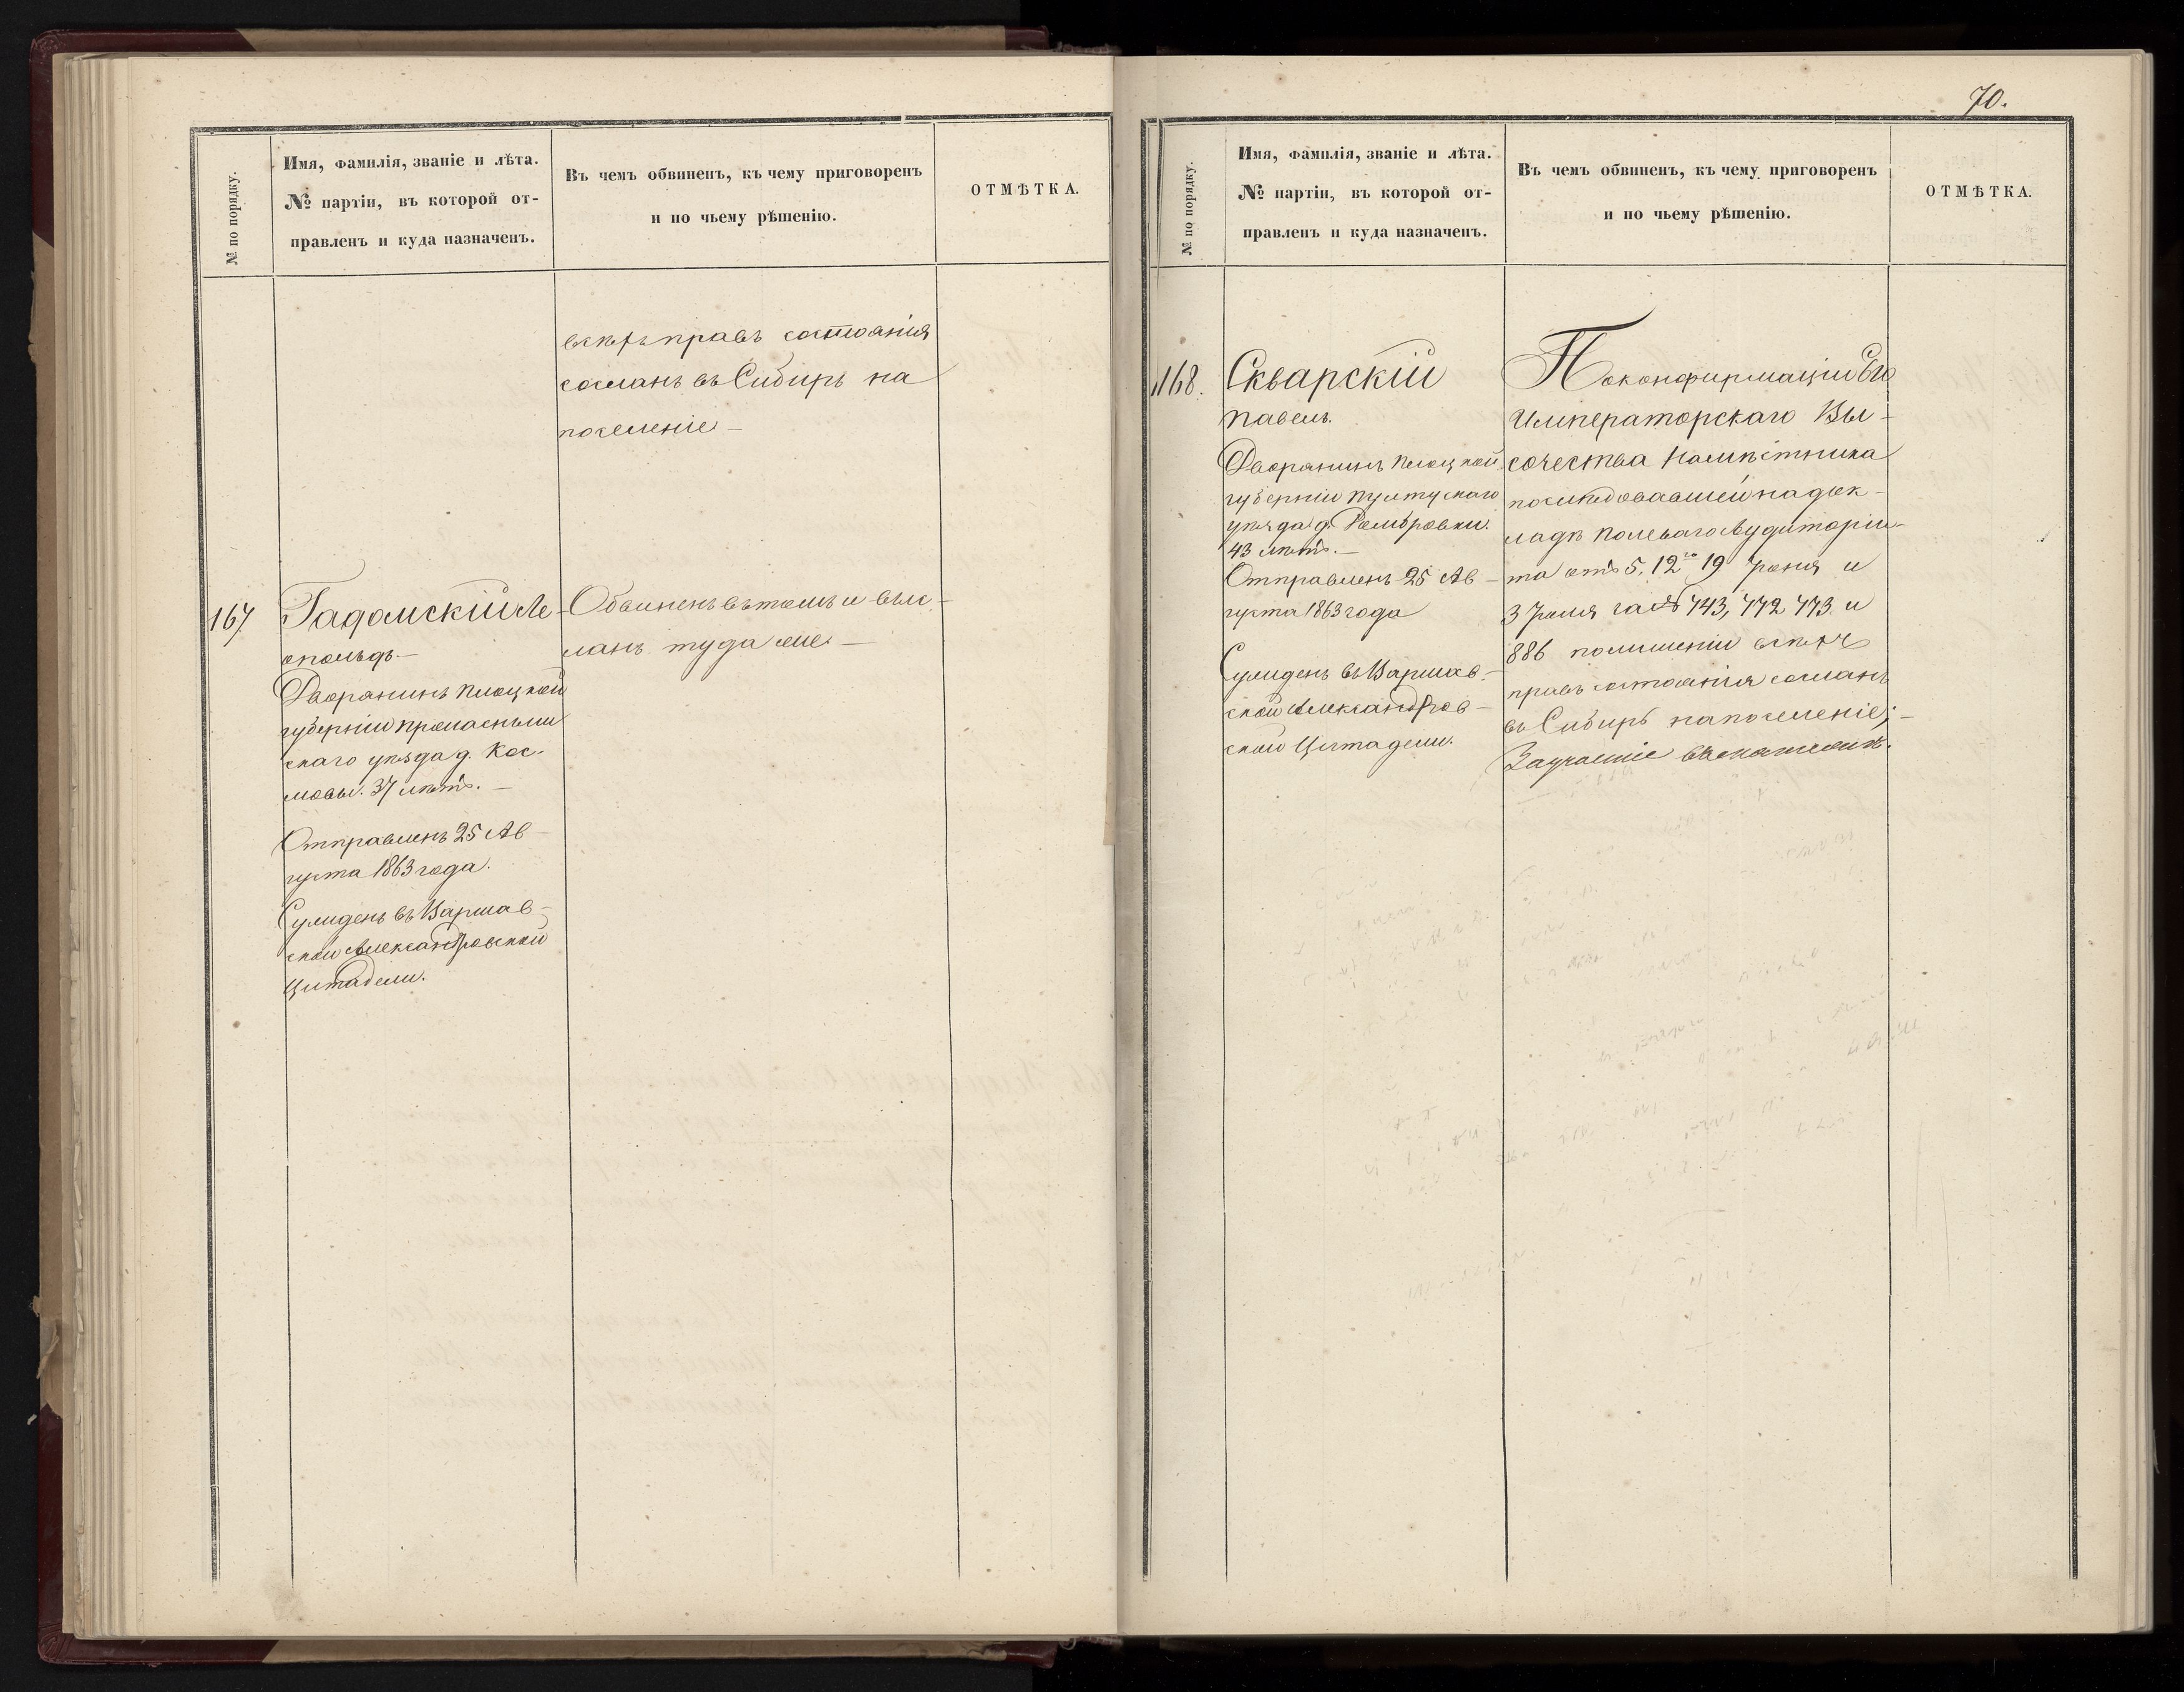 № по порядку.
Имя, фамилія, званіе и лѣта.
№ партіи, въ которой от-
правленъ и куда назначенъ.
Въ чемъ обвиненъ, къ чему приговоренъ
и по чьему рѣшенію.
ОТМѢТКА.
всѣхъ правъ состоянія
сосланъ въ Сибирь на
поселеніе —
167
Гадомскій Ле-
опольдъ —
Дворянинъ Плоцкой
губерніи
скаго уѣзда д. Кос-
мовы. 37 лѣтъ. —
Отправленъ 25 Ав-
густа 1863 года.
Судиденъ въ Варшав-
ской Александровской
Цитадели.
Обвиненъ въ томъ и вы-
ланъ туда же —
70.
№ по порядку.
Имя, фамилія, званіе и лѣта.
№ партіи, въ которой от-
правленъ и куда назначенъ.
Въ чемъ обвиненъ, къ чему приговоренъ
и по чьему рѣшенію.
ОТМѢТКА.
168.
Скварскій
Павелъ.
Дворянинъ Плоцкой
губерніи Пултускаго
уѣзда д.
43 лѣтъ. —
Отправленъ 25 Ав-
густа 1863 года
Судиденъ въ Варшав-
ской Александров-
ской Цитадели.
По конфирмаціи Его
Императорскаго Вы-
сочества Намѣстника
послѣдовавшей на док-
ладѣ Полеваго Аудиторіа-
та отъ 5, 12го 19 Іюня и
3 Іюля за № 743, 772 773 и
886 по лишеніи всѣхъ
правъ состоянія сосланъ
въ Сибирь на поселеніе; —
За участіе въ мятежѣ.